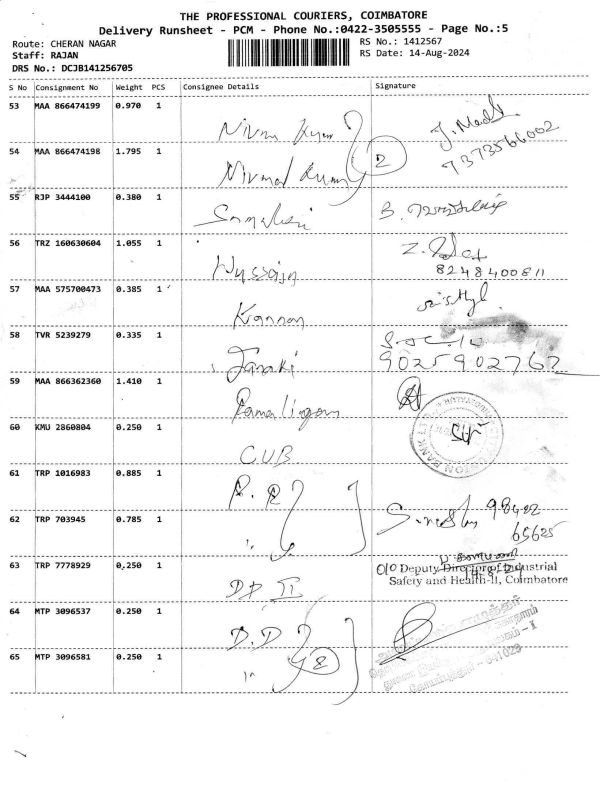 THE PROFESSIONAL COURIERS, COIMBATORE
Delivery Runsheet - PCM - Phone No.:0422-3505555 - Page No.:5
Route: CHERAN NAGAR
RS No.: 1412567
Staff: RAJAN
RS Date: 14-Aug-2024
DRS No.: DCJB141256705
S No Consignment No Weight PCS Consignee Details Signature
53 MAA 866474199 0.970 1 Nirmal Kumar
7373566002
54 MAA 866474198 1.795 1 Nirmal Kumar 2
55 RJP 3444100 0.380 1
56 TRZ 160630604 1.055 1 Hussain
8248400811
57 MAA 575700473 0.385 1 Kannan
58 TVR 5239279 0.335 1 Janaki
9025902762
59 MAA 866362360 1.410 1 Ramalingam
60 KMU 2860804 0.250 1 CUB
61 TRP 1016983 0.885 1
98422
62 TRP 703945 0.785 1
65625
63 TRP 7778929 0.250 1 DD II
O/O Deputy Director of Industrial
Safety and Health-II, Coimbatore
64 MTP 3096537 0.250 1 D.D
65 MTP 3096581 0.250 1 2
641029